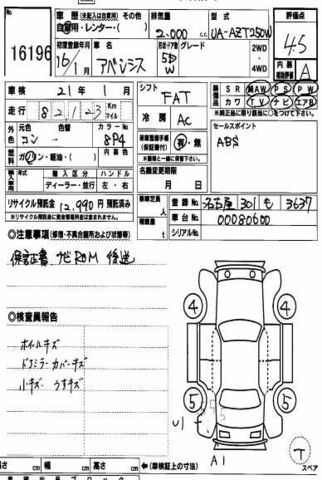 16196
車歴 (未記入は自家用) その他
自家用・レンター・( )
排気量
2.000 c.c.
型式
UA-AZT250W
評価点
4.5
初度登録年月
16/1
車名
アベンシス
形状ドア数
5D
W
グレード
2WD
・
4WD
内装
補助評価 A
車検 21年1月
シフト FAT
装備品 SR AW PS PW
カワ TV ナビ エアB
※純正品に限り○をつけて下さい。
走行 82123 Km
マイル
冷房 AC
セールスポイント
ABS
外色 元色 色替 カラー No.
コン 8P4
新車整備手帳
(保証書付)
有・無
燃料 ガソリン・軽油・( )
名義変更期限
月 日
輸入車 輸入区分 ハンドル
ディーラー・並行 左・右
リサイクル預託金 12,990円 預託済み
※リサイクル預託金に資金管理料金は含まれません。
乗車定員
人
積載量
t
登録No. 名古屋 301 も 3637
車台No. 0080600
シリアルNo.
◎注意事項 (修復・不具合箇所および状態等)
保証書 ナビROM 後送
◎検査員報告
ホイールキズ
ドアミラーカバーキズ
小キズ うすキズ
4
4
5
5
U1
A1
T
スペア
長さ cm 幅 cm 高さ cm ←(車検証上の寸法)